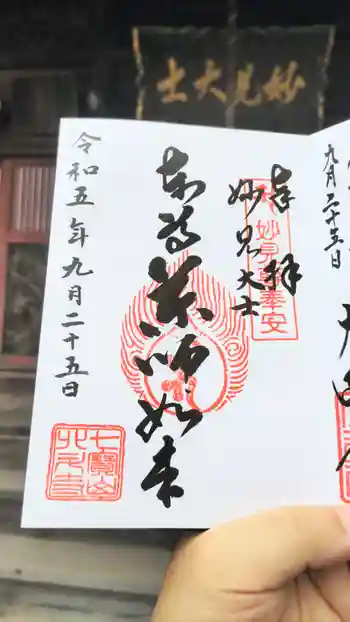 妙見大士
奉拝
妙見大士
本尊薬師如来
令和五年九月二十五日
妙見尊奉安
七寶山
九月二十五日